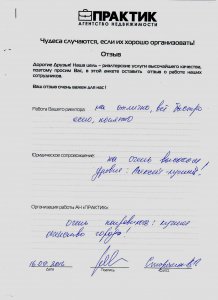 ПРАКТИК
АГЕНТСТВО НЕДВИЖИМОСТИ
Чудеса случаются, если их хорошо организовать!
Отзыв
Дорогие друзья! Наша цель – риэлтерские услуги высочайшего качества,
поэтому просим Вас, в этой анкете оставить отзыв о работе наших
сотрудников.
Ваш отзыв очень важен для нас!
Работа Вашего риелтора на отлично, всё быстро
ясно, понятно
Юридическое сопровождение: на очень высоком
уровне! Алексей - лучший!
Организация работы АН «ПРАКТИК»
очень понравилось! лучшее
агентство города!
Дата
Подпись